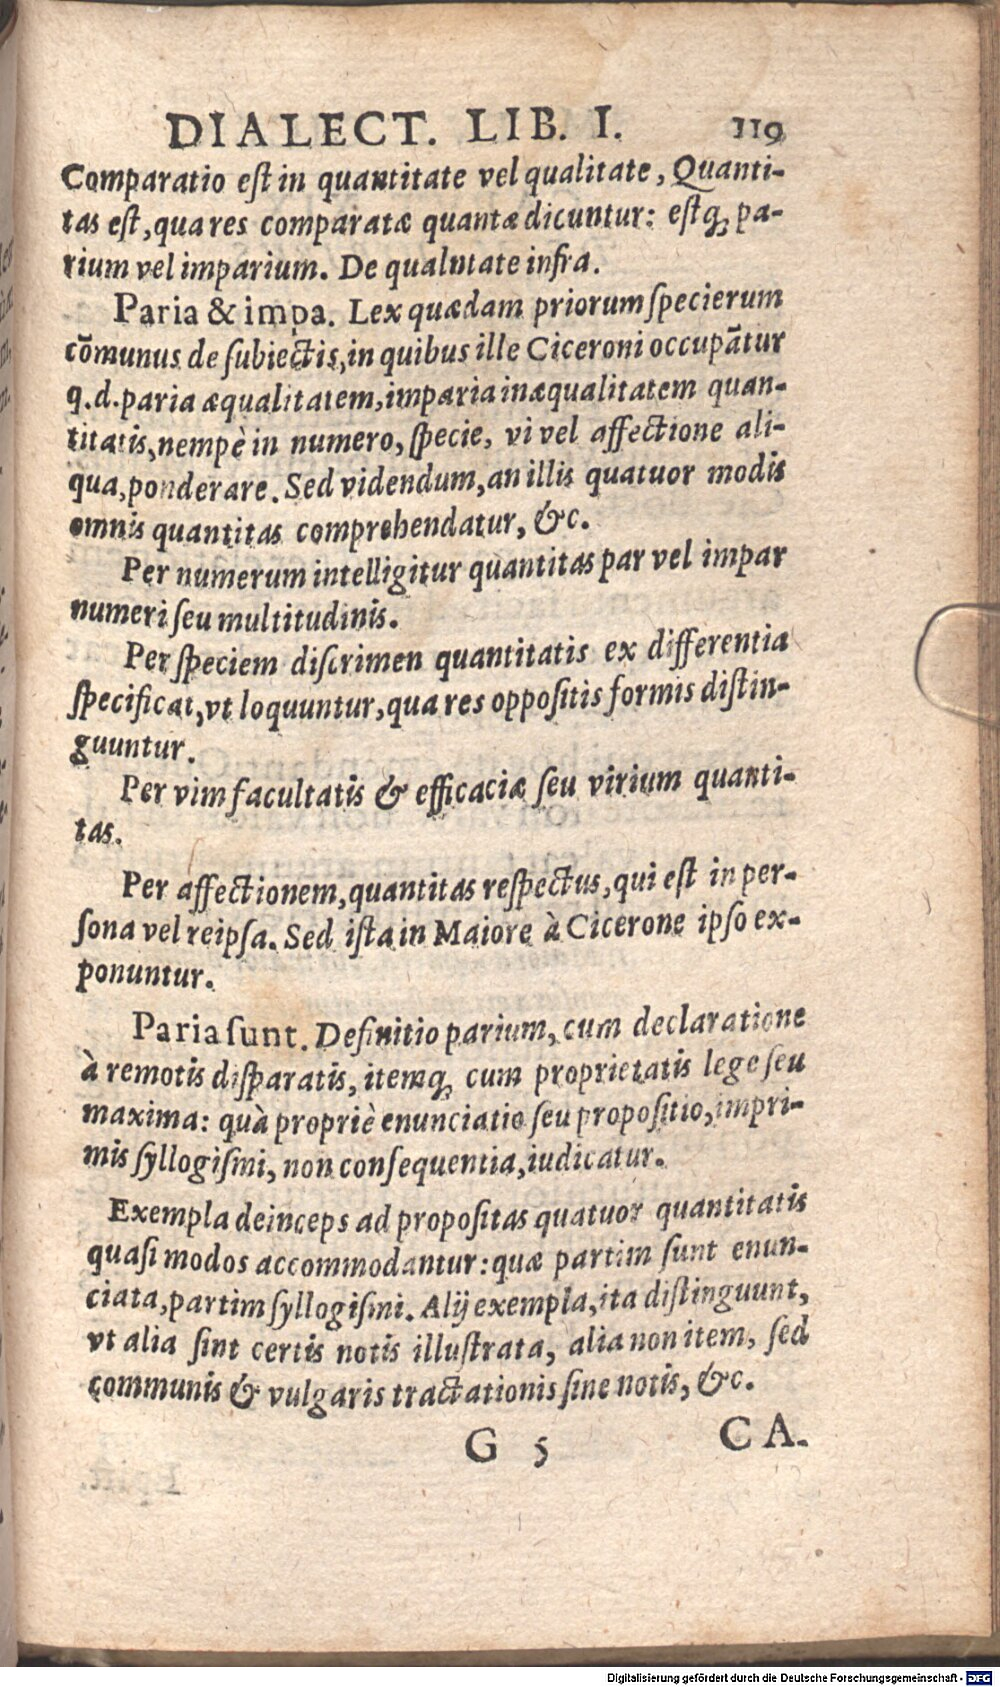 DIALECT. LIB. I. 119
Comparatio est in quantitate vel qualitate, Quanti-
tas est, qua res comparatæ quantæ dicuntur: estq́; pa-
rium vel imparium. De qualitate infra.
Paria & impa. Lex quædam priorum specierum
cōmunis de subiectis, in quibus ille Ciceroni occupātur
q.d. paria æqualitatem, imparia inæqualitatem quan-
titatis, nempè in numero, specie, vi vel affectione ali-
qua, ponderare. Sed videndum, an illis quatuor modis
omnis quantitas comprehendatur, &c.
Per numerum intelligitur quantitas par vel impar
numeri seu multitudinis.
Per speciem discrimen quantitatis ex differentia
specificat, vt loquuntur, qua res oppositis formis distin-
guuntur.
Per vim facultatis & efficaciæ seu virium quanti-
tas.
Per affectionem, quantitas respectus, qui est in per-
sona vel reipsa. Sed ista in Maiore à Cicerone ipso ex-
ponuntur.
Paria sunt. Definitio parium, cum declaratione
à remotis disparatis, itemq́; cum proprietatis lege seu
maxima: quà propriè enunciatio seu propositio, impri-
mis syllogismi, non consequentia, iudicatur.
Exempla deinceps ad propositas quatuor quantitatis
quasi modos accommodantur: quæ partim sunt enun-
ciata, partim syllogismi. Alij exempla, ita distinguunt,
vt alia sint certis notis illustrata, alia non item, sed
communis & vulgaris tractationis sine notis, &c.
G 5 CA.
Digitalisierung gefördert durch die Deutsche Forschungsgemeinschaft - DFG